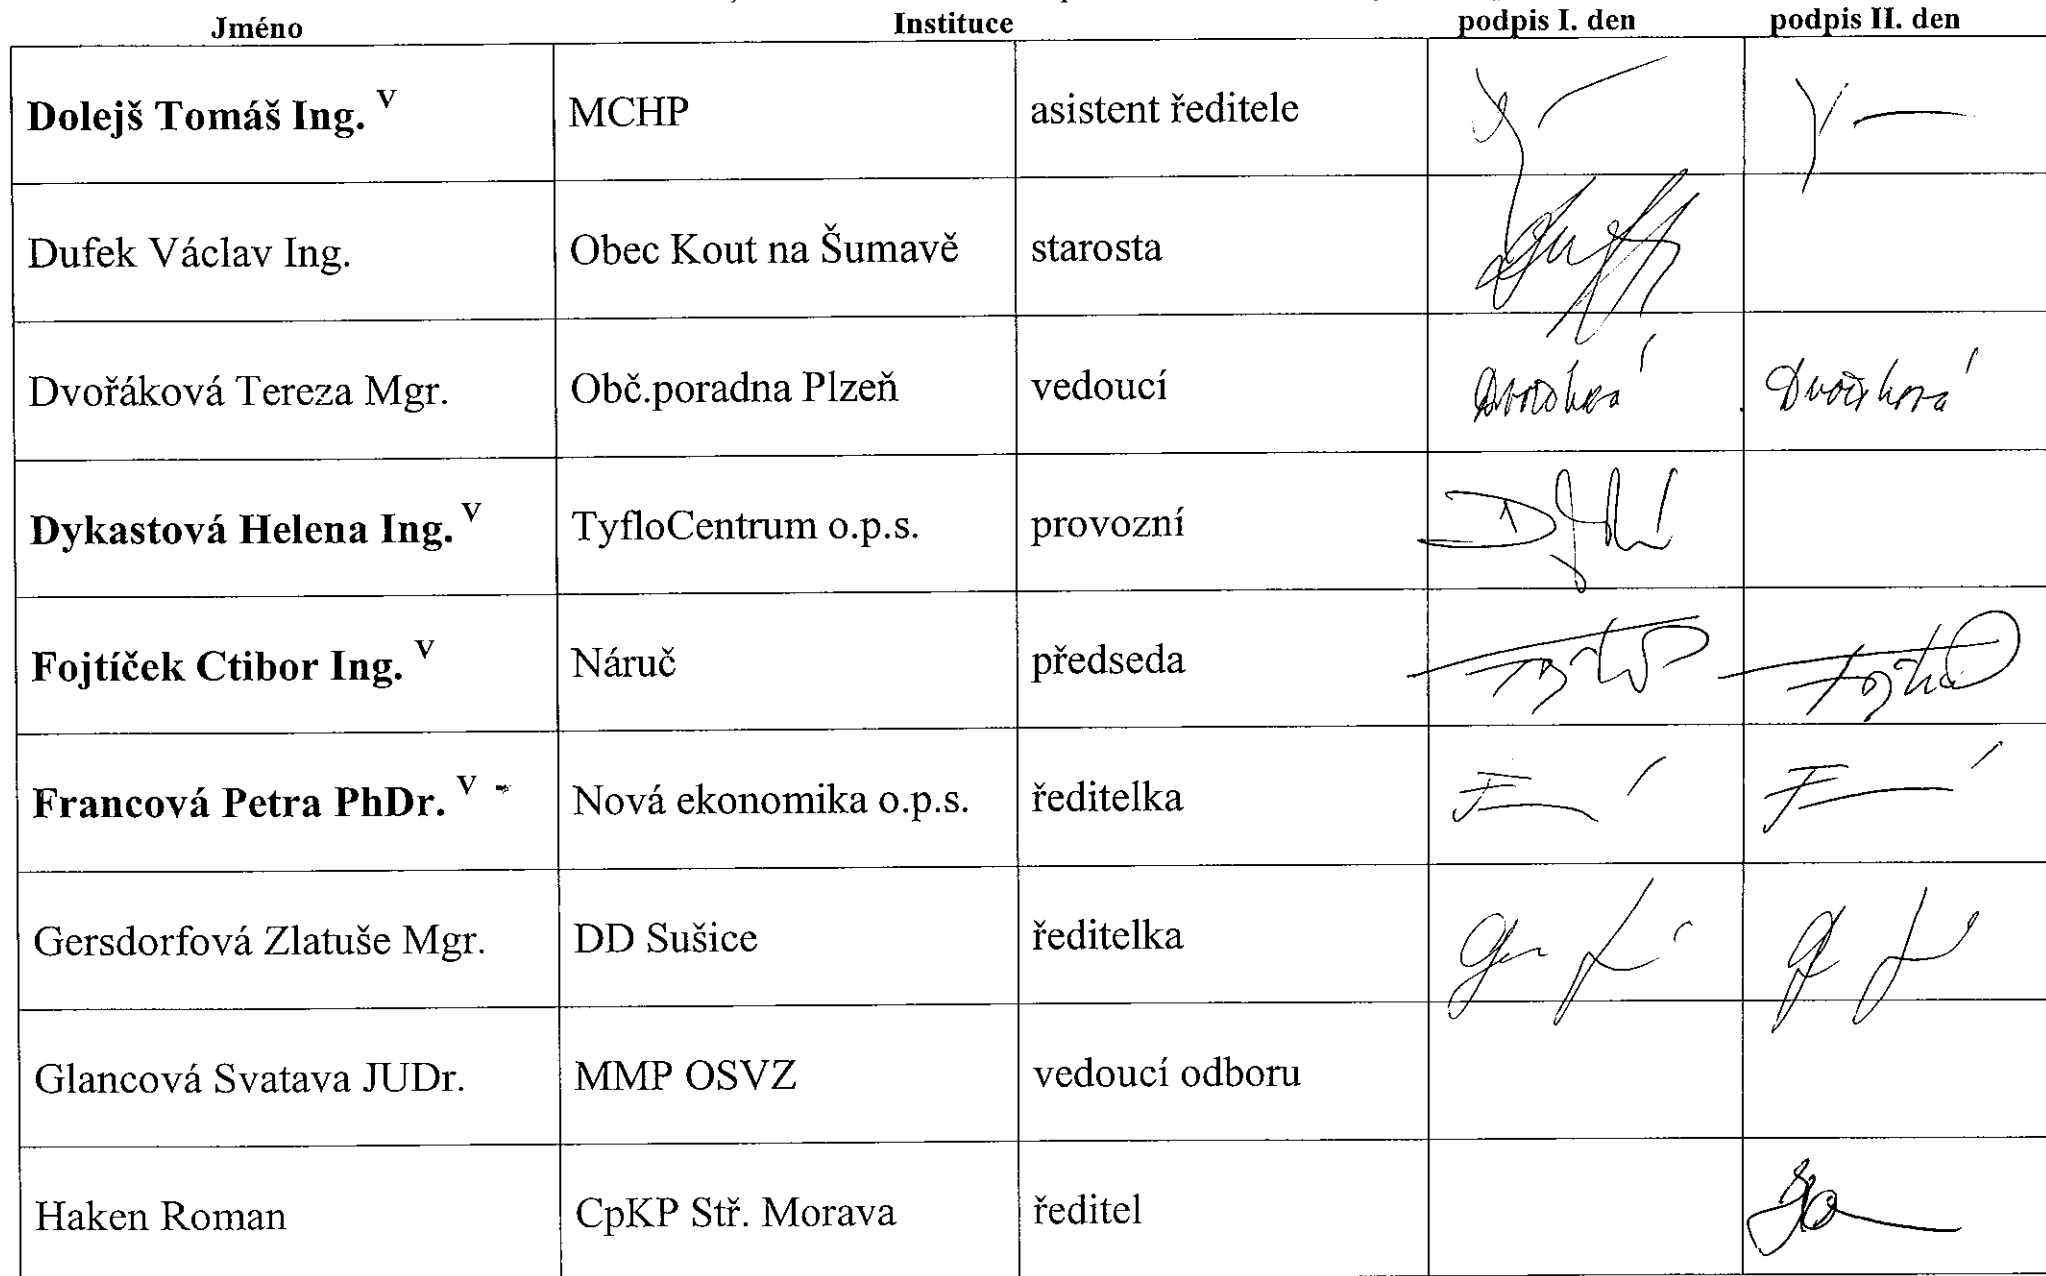 Jméno Instituce podpis I. den podpis II. den
Dolejš Tomáš Ing. V MCHP asistent ředitele
Dufek Václav Ing. Obec Kout na Šumavě starosta
Dvořáková Tereza Mgr. Obč.poradna Plzeň vedoucí Dvořáková Dvořáková
Dykastová Helena Ing. V TyfloCentrum o.p.s. provozní
Fojtíček Ctibor Ing. V Náruč předseda
Francová Petra PhDr. V Nová ekonomika o.p.s. ředitelka
Gersdorfová Zlatuše Mgr. DD Sušice ředitelka
Glancová Svatava JUDr. MMP OSVZ vedoucí odboru
Haken Roman CpKP Stř. Morava ředitel